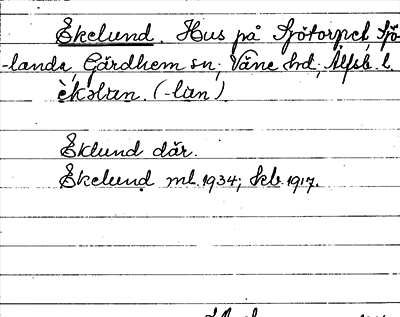 Ekelund. Hus på Sjötorpet, Sjö
-landa, Gärdhem sn; Väne hd; Älfsb. l.
èkəlun. (-lun)
Eklund där.
Ekelund ml. 1934; kb. 1917.